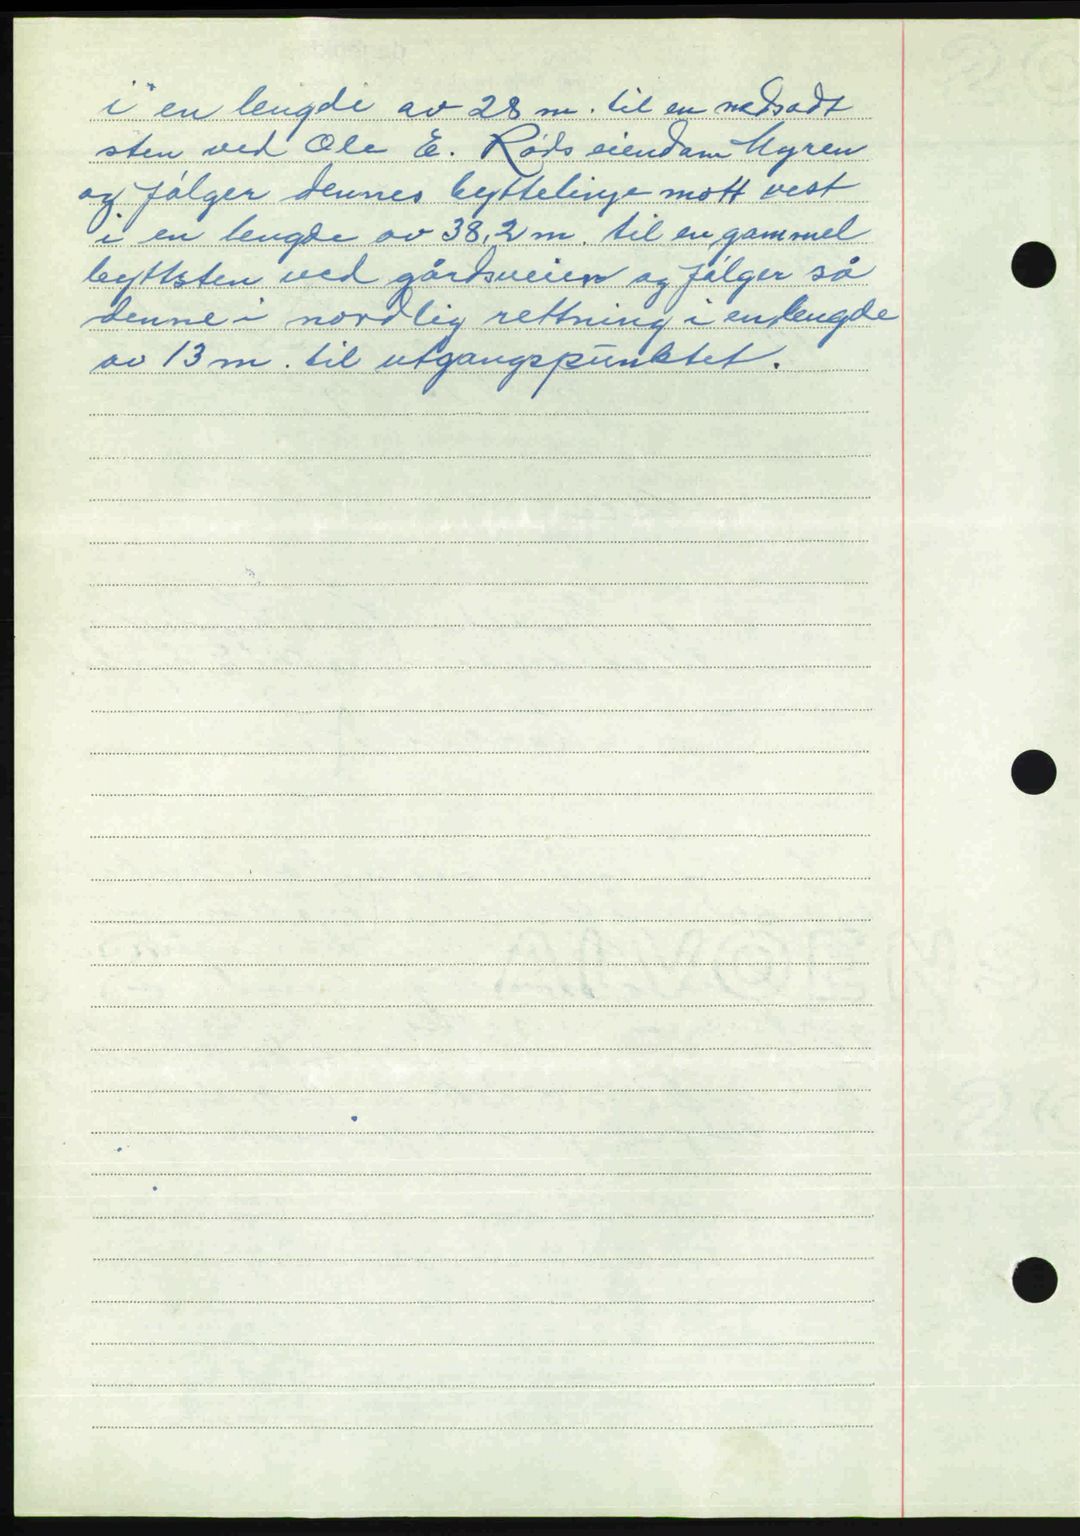 i en lengde av 28 m. til en nedsadt
sten ved Ole E. Røds eiendom Myren
og følger dennes byttelinje mott vest
i en lengde av 38,2 m. til en gammel
byttsten ved gårdsveien og følger så
denne i nordlig rettning i en lengde
av 13 m. til utgangspunktet.